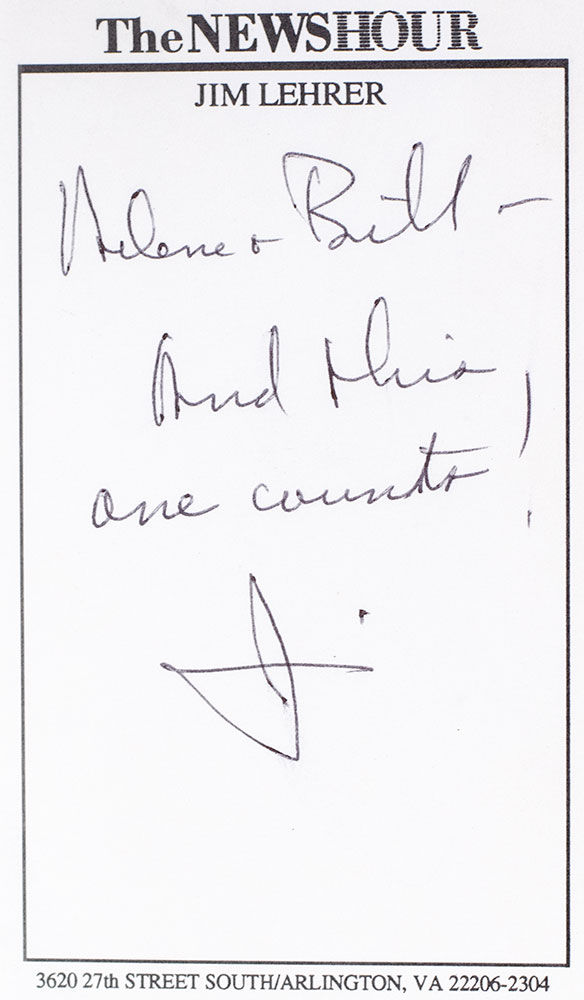 The NEWSHOUR
JIM LEHRER
Helene + Bill -
And this
one counts!
Jim
3620 27th STREET SOUTH/ARLINGTON, VA 22206-2304